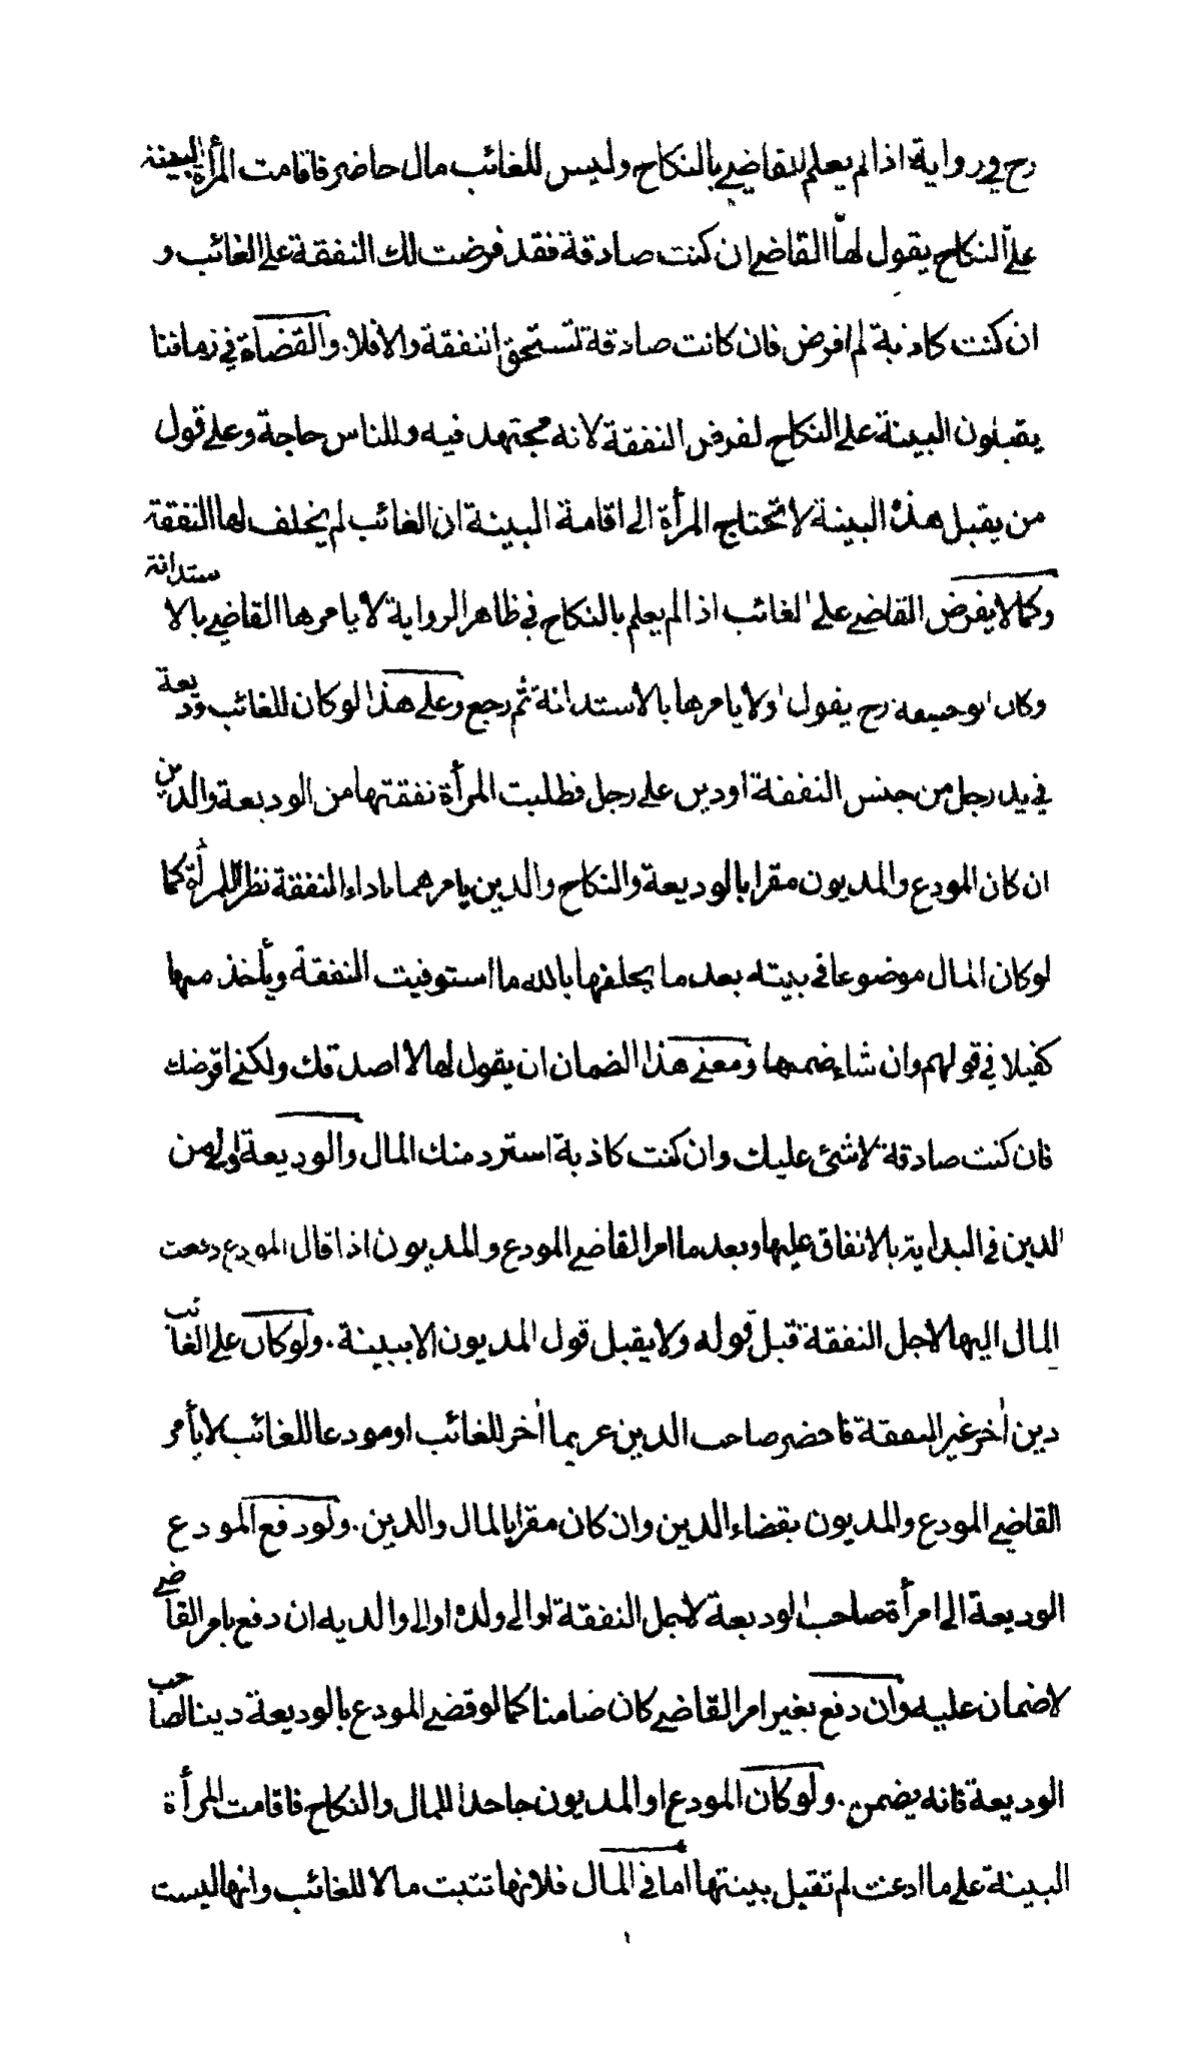 رح وفي رواية اذا لم يعلم القاضي بالنكاح وليس للغائب مال حاضر فاقامت المرأة البينة
على النكاح يقول لها القاضي ان كنت صادقة فقد فرضت لك النفقة على الغائب و
ان كنت كاذبة لم افرض فان كانت صادقة تستحق النفقة والا فلا. والقضاة في زماننا
يقبلون البينة على النكاح لفرض النفقة لانه مجتهد فيه وللناس حاجة وعلى قول
من يقبل هذه البينة لا تحتاج المرأة الى اقامة البينة ان الغائب لم يخلف لها النفقة
وكما لا يفرض القاضي على الغائب اذا لم يعلم بالنكاح في ظاهر الرواية لا يامرها القاضي بالاستدانة
وكان ابو حنيفة رح يقول اولا يامرها بالاستدانة ثم رجع وعلى هذا لو كان للغائب وديعة
في يد رجل من جنس النفقة او دين على رجل فطلبت المرأة نفقتها من الوديعة والدين
ان كان المودع والمديون مقرا بالوديعة والنكاح والدين يامرهما باداء النفقة نظرا للمرأة كما
لو كان المال موضوعا في بيته بعد ما يحلفها بالله ما استوفيت النفقة ويأخذ منها
كفيلا في قولهم وان شاء ضمنها ومعنى هذا الضمان ان يقول لها لا اصدقك ولكني اقرضك
فان كنت صادقة لا شئ عليك وان كنت كاذبة استرد منك المال والوديعة اولى من
الدين في البداية بالانفاق عليها وبعد ما امر القاضي المودع والمديون اذا قال المودع دفعت
المال اليها لاجل النفقة قبل قوله ولا يقبل قول المديون الا ببينة. ولو كان على الغائب
دين اخر غير النفقة فاحضر صاحب الدين غريما اخر للغائب او مودعا للغائب لا يأمر
القاضي المودع والمديون بقضاء الدين وان كان مقرا بالمال والدين. ولو دفع المودع
الوديعة الى امرأة صاحب الوديعة لاجل النفقة او الى ولده او الى والديه ان دفع بامر القاضي
لا ضمان عليه وان دفع بغير امر القاضي كان ضامنا كما لو قضى المودع بالوديعة دينا لصاحب
الوديعة فانه يضمن. ولو كان المودع او المديون جاحدا للمال والنكاح فاقامت المرأة
البينة على ما ادعت لم تقبل بينتها اما في المال فلانها تثبت مالا للغائب وانها ليست